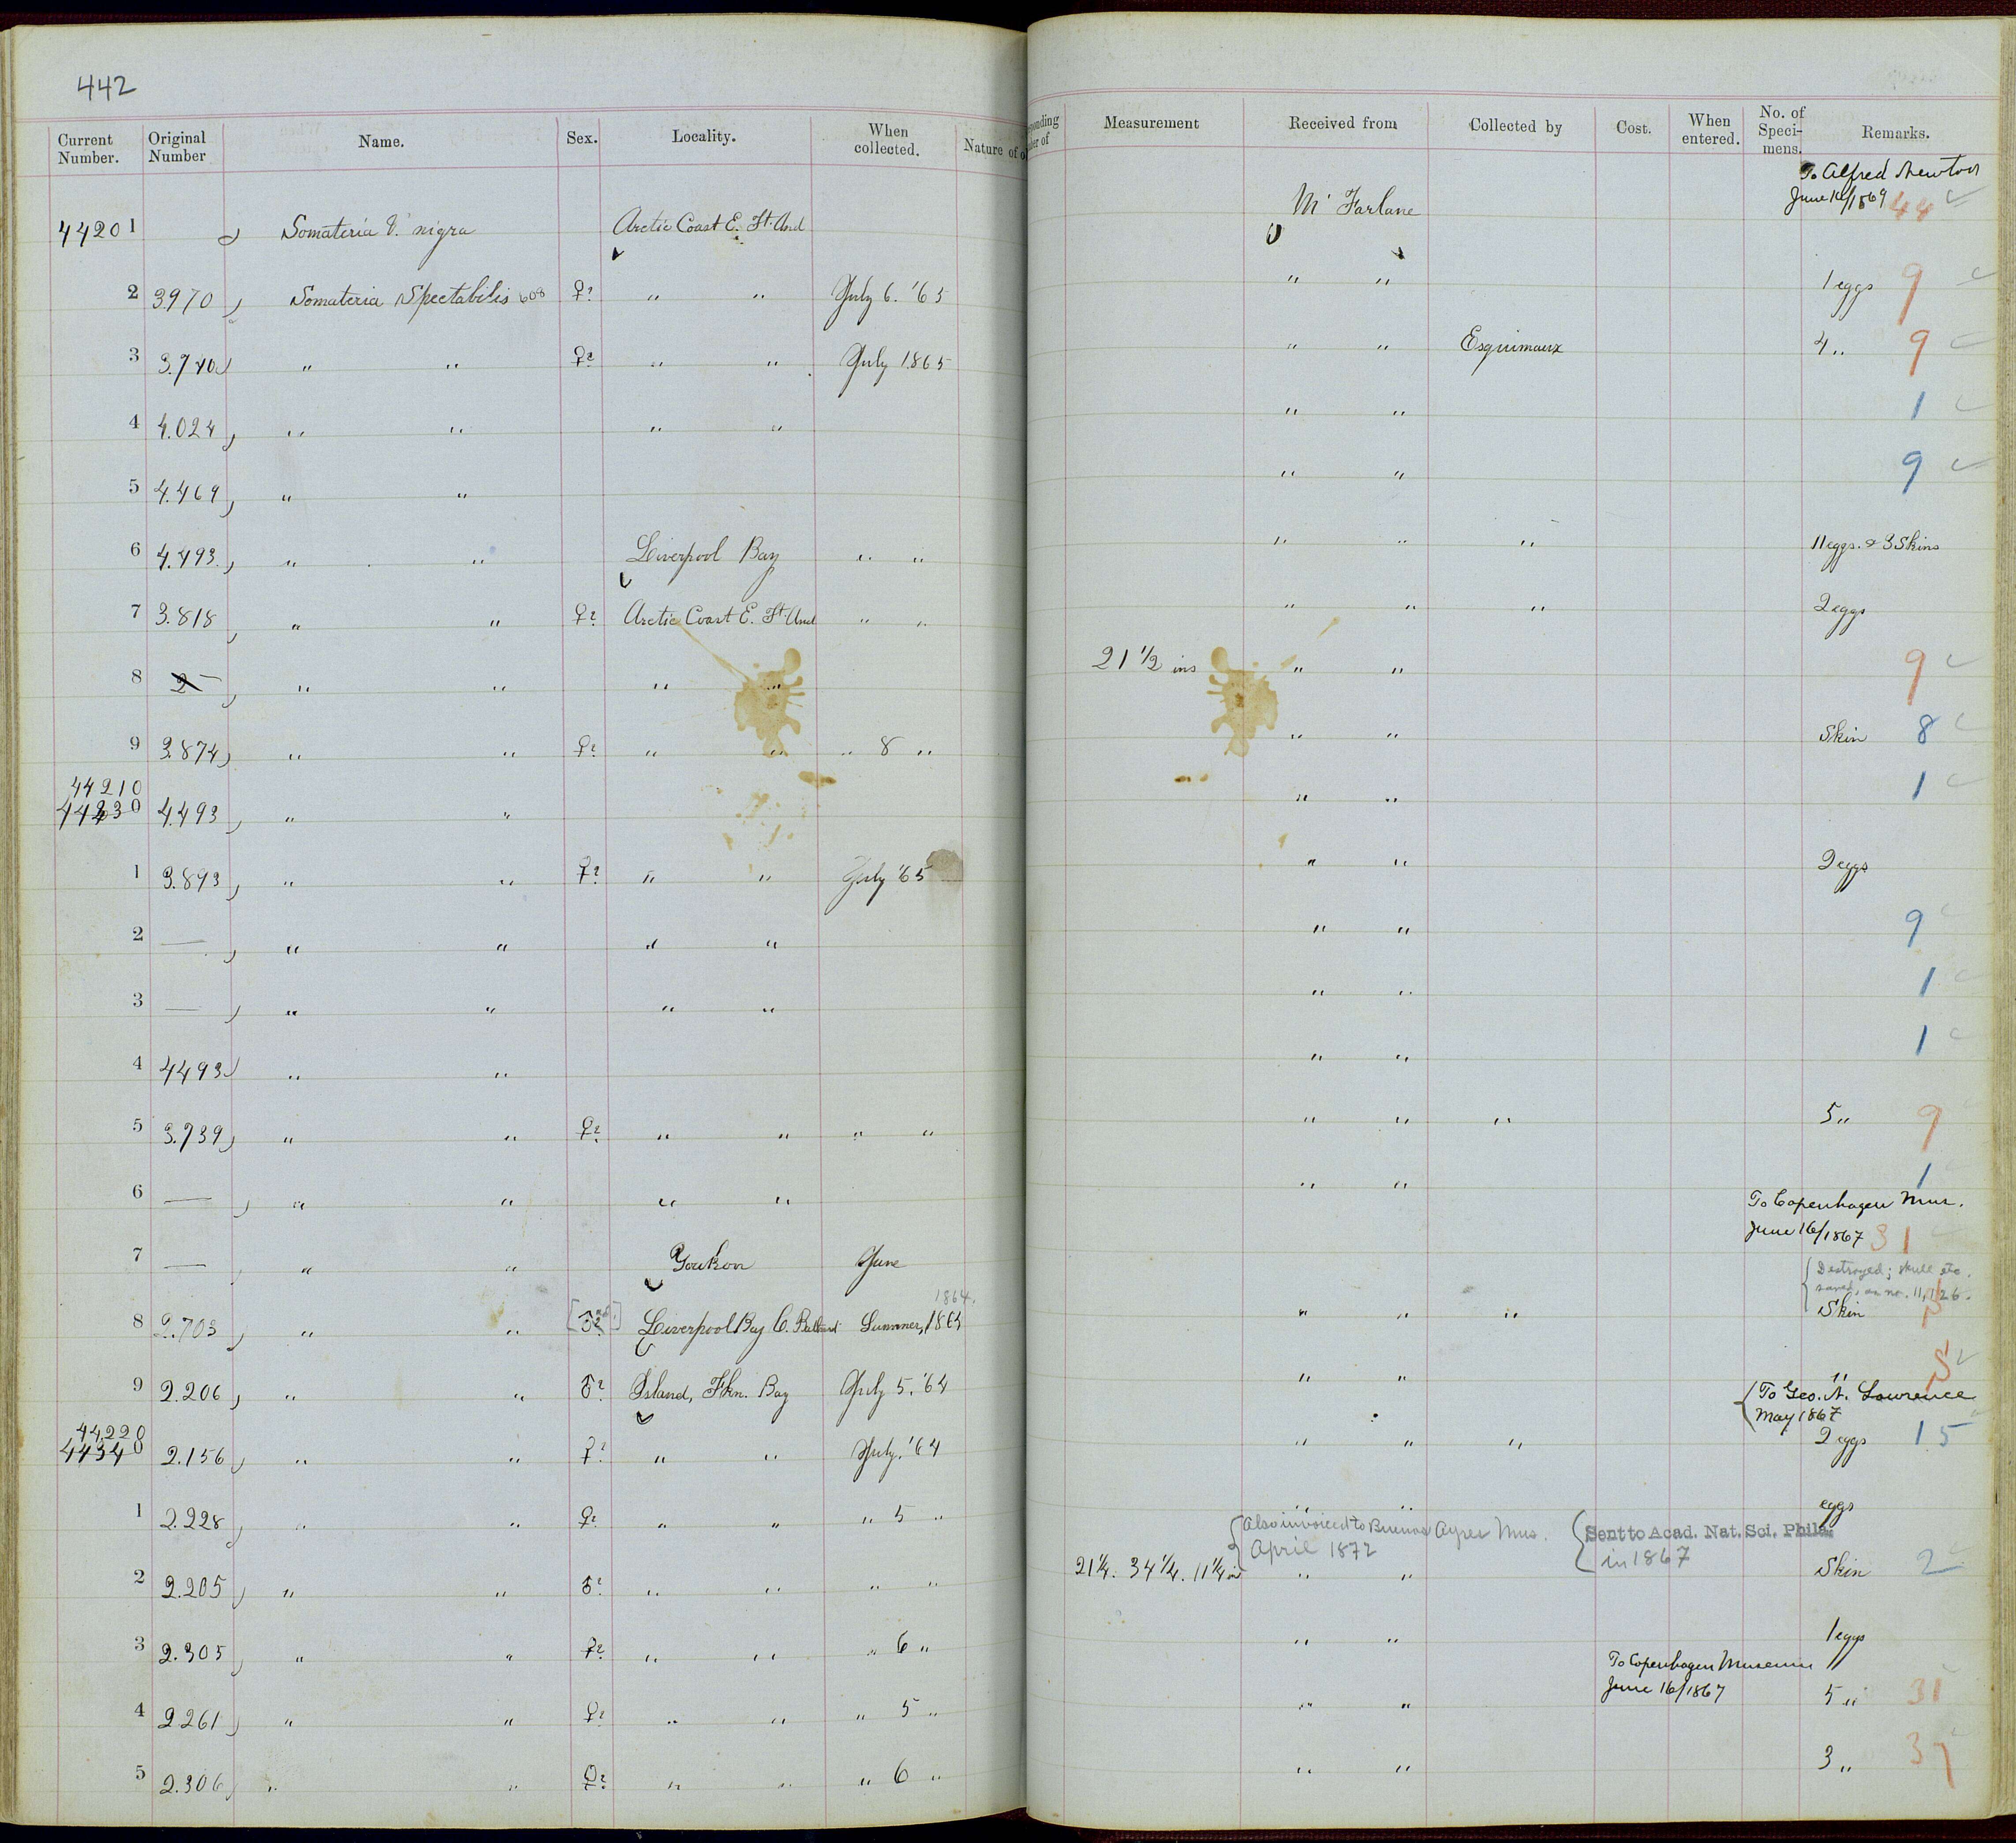 442
Current Number. Original Number Name. Sex. Locality. When collected. Nature of
44201 Somateria V. nigra Arctic Coast E. Ft. And
2 3970 Somateria Spectabilis 608 ♀? " " July 6. '65
3 3.740 " " ♀? " " July 1865
4 4.024 " " " "
5 4.469 " "
6 4.493. " " Liverpool Bay " "
7 3.818 " " ♀? Arctic Coast E. Ft. And " "
8 2 — " " " "
9 3.874 " " ♀? " " " 8 "
44210
44230 4.493 " "
1 3.893 " " ♀? " " July '65
2 — " " " "
3 — " " " "
4 4493 " "
5 3.739 " " ♀? " " " "
6 — " " " "
7 — " " Youkon June
1864.
8 2.703 " " ♂? Liverpool Bay C. Bathurst Summer, 1865
9 2.206 " " ♂? Island, Fkn. Bay July 5. '64
44220
44340 2.156 " " ♀? " " July. '64
1 2.228 " " ♀? " " " 5 "
2 2.205 " " ♂? " " " "
3 2.305 " " ♀? " " " 6 "
4 2261 " " ♀? " " " 5 "
5 2.306 " " ♀? " " " 6 "
Measurement Received from Collected by Cost. When entered. No. of Specimens. Remarks.
To Alfred Newton
June 16/1869 44
McFarlane
" " 1 eggs 9
" " Esquimaux 4 " 9
" " 1
" " 9
" " " 11 eggs. & 3 Skins
" " " 2 eggs
21 1/2 ins " " 9
" " Skin 8
" " 1
" " 2 eggs
" " 9
" " 1
" " 1
" " " 5 " 9
" " 1
To Copenhagen Mus.
June 16/1867 31
Destroyed; skull etc.
saved, as no. 11,126.
" " " Skin
" " "
To Geo. N. Lawrence
May 1867
" " " 2 eggs 15
" " eggs
Also invoiced to Buenos Ayres Mus. Sent to Acad. Nat. Sci. Phila.
April 1872 in 1867
21 1/4. 34 1/4. 11 1/4 in " " Skin 2
" " 1 eggs
To Copenhagen Museum
June 16/1867
" " 5 " 31
" " 3 " 37